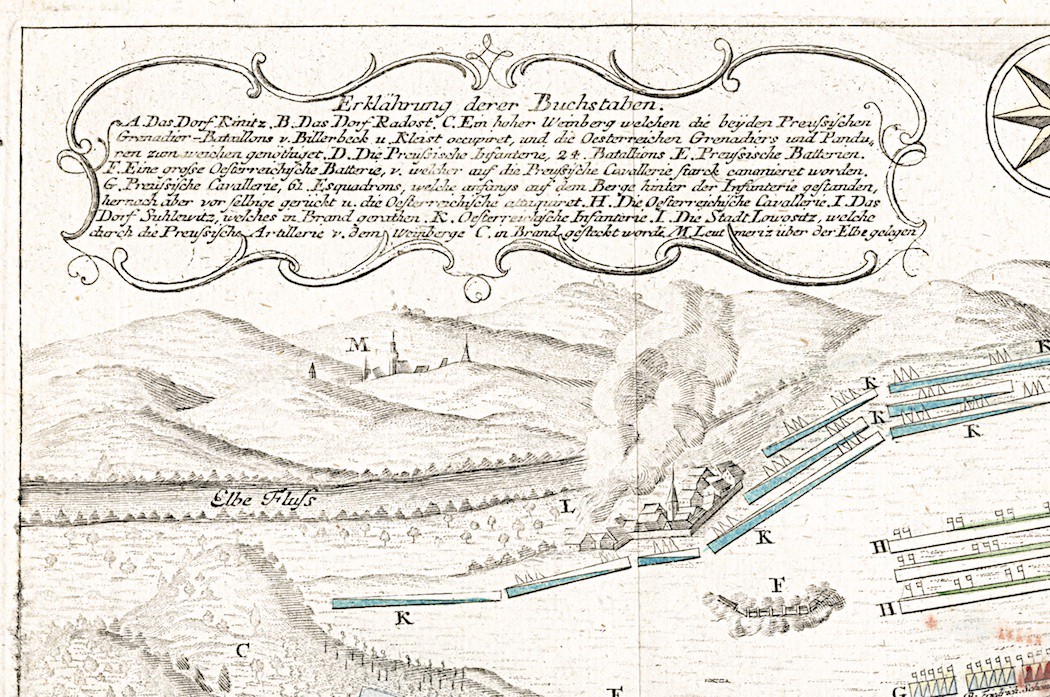 Erklährung derer Buchstaben.
A. Das Dorf Kinitz. B. Das Dorf Radost, C. Ein hoher Weinberg welchen die beyden Preussischen
Grenadier-Bataillons v. Billerbeck u. Kleist occupiret, und die Oesterreichen Grenadiers und Pandu,,
ren zum weichen genöthiget. D. Die Preussische Infanterie, 24. Batallions E. Preussische Batterien.
F. Eine große Oesterreichische Batterie, v. welcher auf die Preussische Cavallerie starck canonieret worden.
G. Preussische Cavallerie, 61. Esquadrons, welche anfangs auf dem Berge hinter der Infanterie gestanden,
hernach aber vor selbige gerückt u. die Oesterreichische attaquiret. H. Die Oesterreichische Cavallerie. I. Das
Dorf Suhlewitz, welches in Brand gerathen. K. Oesterreichische Infanterie. L. Die Stadt Lowositz, welche
durch die Preussische Artillerie v. dem Weinberge C. in Brand gesteckt worde. M. Leutmeriz über der Elbe gelegen
M
K
K
K
K
Elbe Fluss
L
K
H
F
H
K
C
G